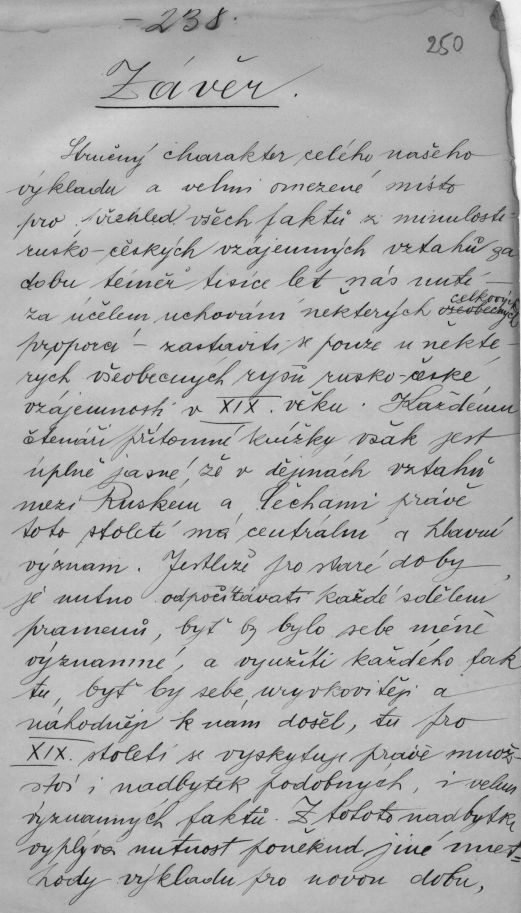 - 238.
250
Závěr.
Stručný charakter celého našeho
výkladu a velmi omezené místo
pro přehled všech faktů z minulosti
rusko-českých vzájemných vztahů za
dobu téměř tisíce let nás nutí –
za účelem uchování některých celkových všeobecných
proporcí – zastaviti se pouze u někte-
rých všeobecných rysů rusko-české
vzájemnosti v XIX. věku. Každému
čtenáři přítomné knížky však jest
úplně jasné, že v dějinách vztahů
mezi Ruskem a Čechami právě
toto století má centrální a hlavní
význam. Jestliže pro staré doby
je nutno odpočítávati každé sdělení
pramenů, byť by bylo sebe méně
významné, a využíti každého fak
tu, byť by sebe uryvkovitěji a
náhodněji k nám došel, tu pro
XIX. století se vyskytuje právě množ-
ství i nadbytek podobných, i velmi
významných faktů. Z tohoto nadbytku
vyplývá nutnost poněkud jiné met-
hody výkladu pro novou dobu,